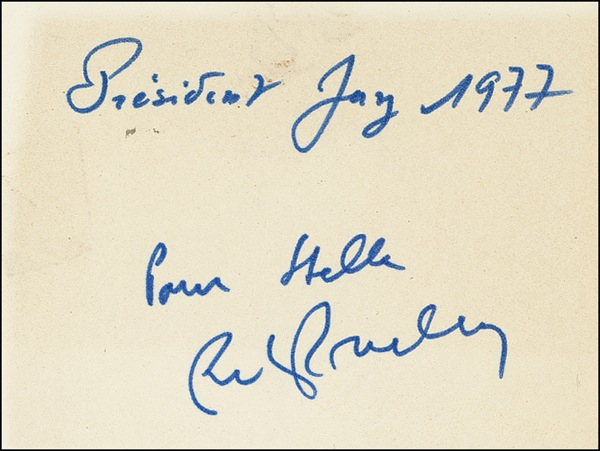 Président Jury 1977
Pour Stella